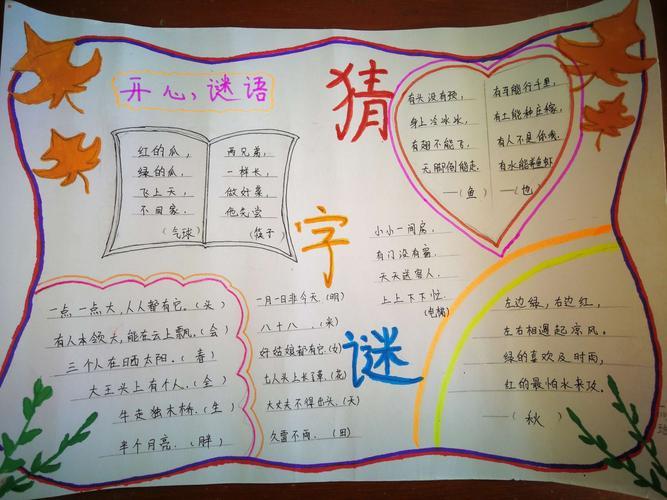 开心谜语
猜
字
谜
红的瓜,
绿的瓜,
飞上天,
不回家.
(气球)
两兄弟,
一样长,
做好菜,
他先尝
(筷子)
有头没有颈,
身上冷冰冰,
有翅不能飞,
无脚倒能走.
——(鱼)
有马能行千里,
有土能种庄稼,
有人不是你我,
有水能养鱼虾
——(也)
小小一间房,
有门没有窗,
天天送客人,
上上下下忙.
(电梯)
一点,一点大,人人都有它.(头)
有人本领大,能在云上飘.(会)
三个人在晒太阳.(春)
大王头上有个人.(全)
牛走独木桥.(生)
半个月亮.(胖)
一月一日非今天.(明)
八十八 .(米)
好姑娘都有它.(女)
七人头上长了草.(花)
大丈夫不得出头.(天)
久雷不雨.(田)
左边绿,右边红,
左右相遇起凉风.
绿的喜欢及时雨,
红的最怕水来攻.
——(秋)